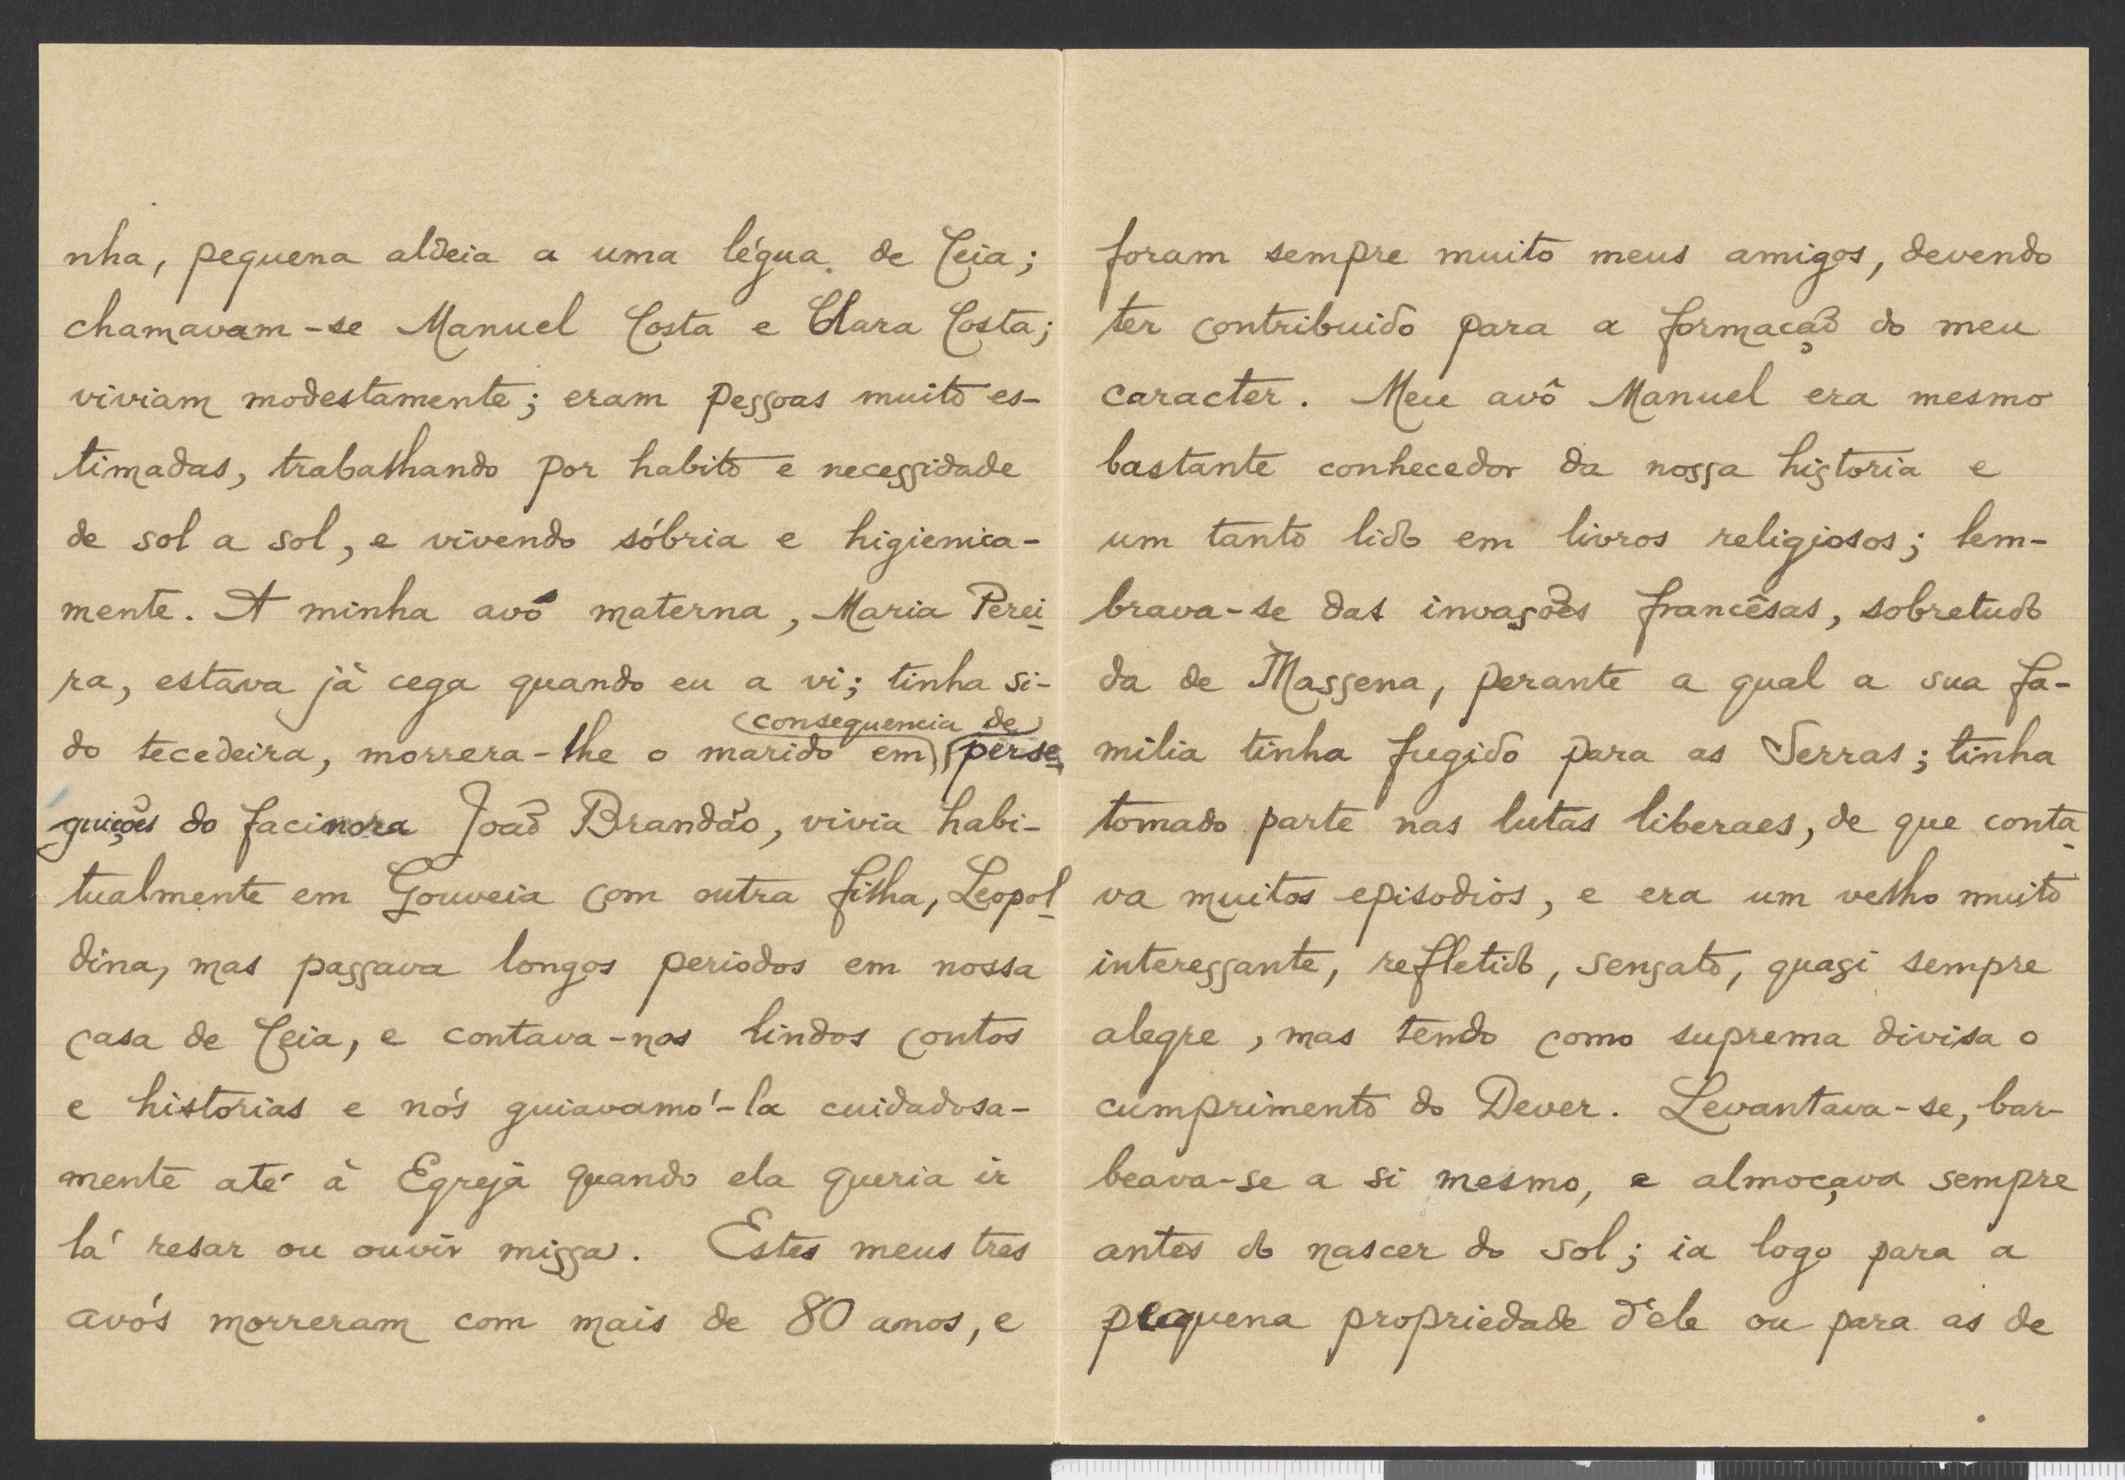 nha, pequena aldeia a uma légua de Ceia;
chamavam-se Manuel Costa e Clara Costa;
viviam modestamente; eram pessoas muito es-
timadas, trabalhando por habito e necessidade
de sol a sol, e vivendo sóbria e higienica-
mente. A minha avó materna, Maria Perei-
ra, estava já cega quando eu a vi; tinha si-
consequencia de
do tecedeira, morrera-lhe o marido em perse-
guições do facinora João Brandão, vivia habi-
tualmente em Gouveia com outra filha, Leopol-
dina, mas passava longos periodos em nossa
casa de Ceia, e contava-nos lindos contos
e historias e nós guiavamo'-la cuidadosa-
mente até à Egreja quando ela queria ir
lá resar ou ouvir missa. Estes meus tres
avós morreram com mais de 80 anos, e
foram sempre muito meus amigos, devendo
ter contribuido para a formação do meu
caracter. Meu avô Manuel era mesmo
bastante conhecedor da nossa historia e
um tanto lido em livros religiosos; lem-
brava-se das invasões francêsas, sobretudo
da de Massena, perante a qual a sua fa-
milia tinha fugido para as Serras; tinha
tomado parte nas lutas liberaes, de que conta-
va muitos episodios, e era um velho muito
interessante, refletido, sensato, quasi sempre
alegre, mas tendo como suprema divisa o
cumprimento do Dever. Levantava-se, bar-
beava-se a si mesmo, e almoçava sempre
antes do nascer do sol; ia logo para a
pequena propriedade d'ele ou para as de